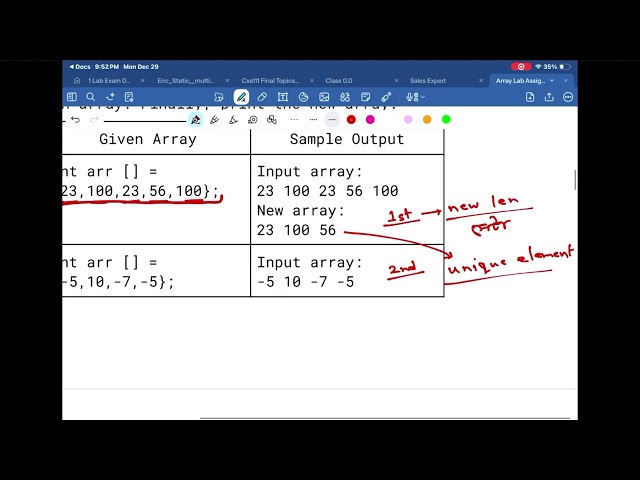 Docs 9:52PM Mon Dec 29 35%
1 Lab Exam 0... Enc_Static_multi... Cse111 Final Topics... Class 0.0 Sales Expert Array Lab Assig...
array. Finally, print the new array.
Given Array Sample Output
nt arr [] =
23,100,23,56,100};
Input array:
23 100 23 56 100
New array:
23 100 56
1st → new len
nt arr [] =
-5,10,-7,-5};
Input array:
-5 10 -7 -5
2nd unique element